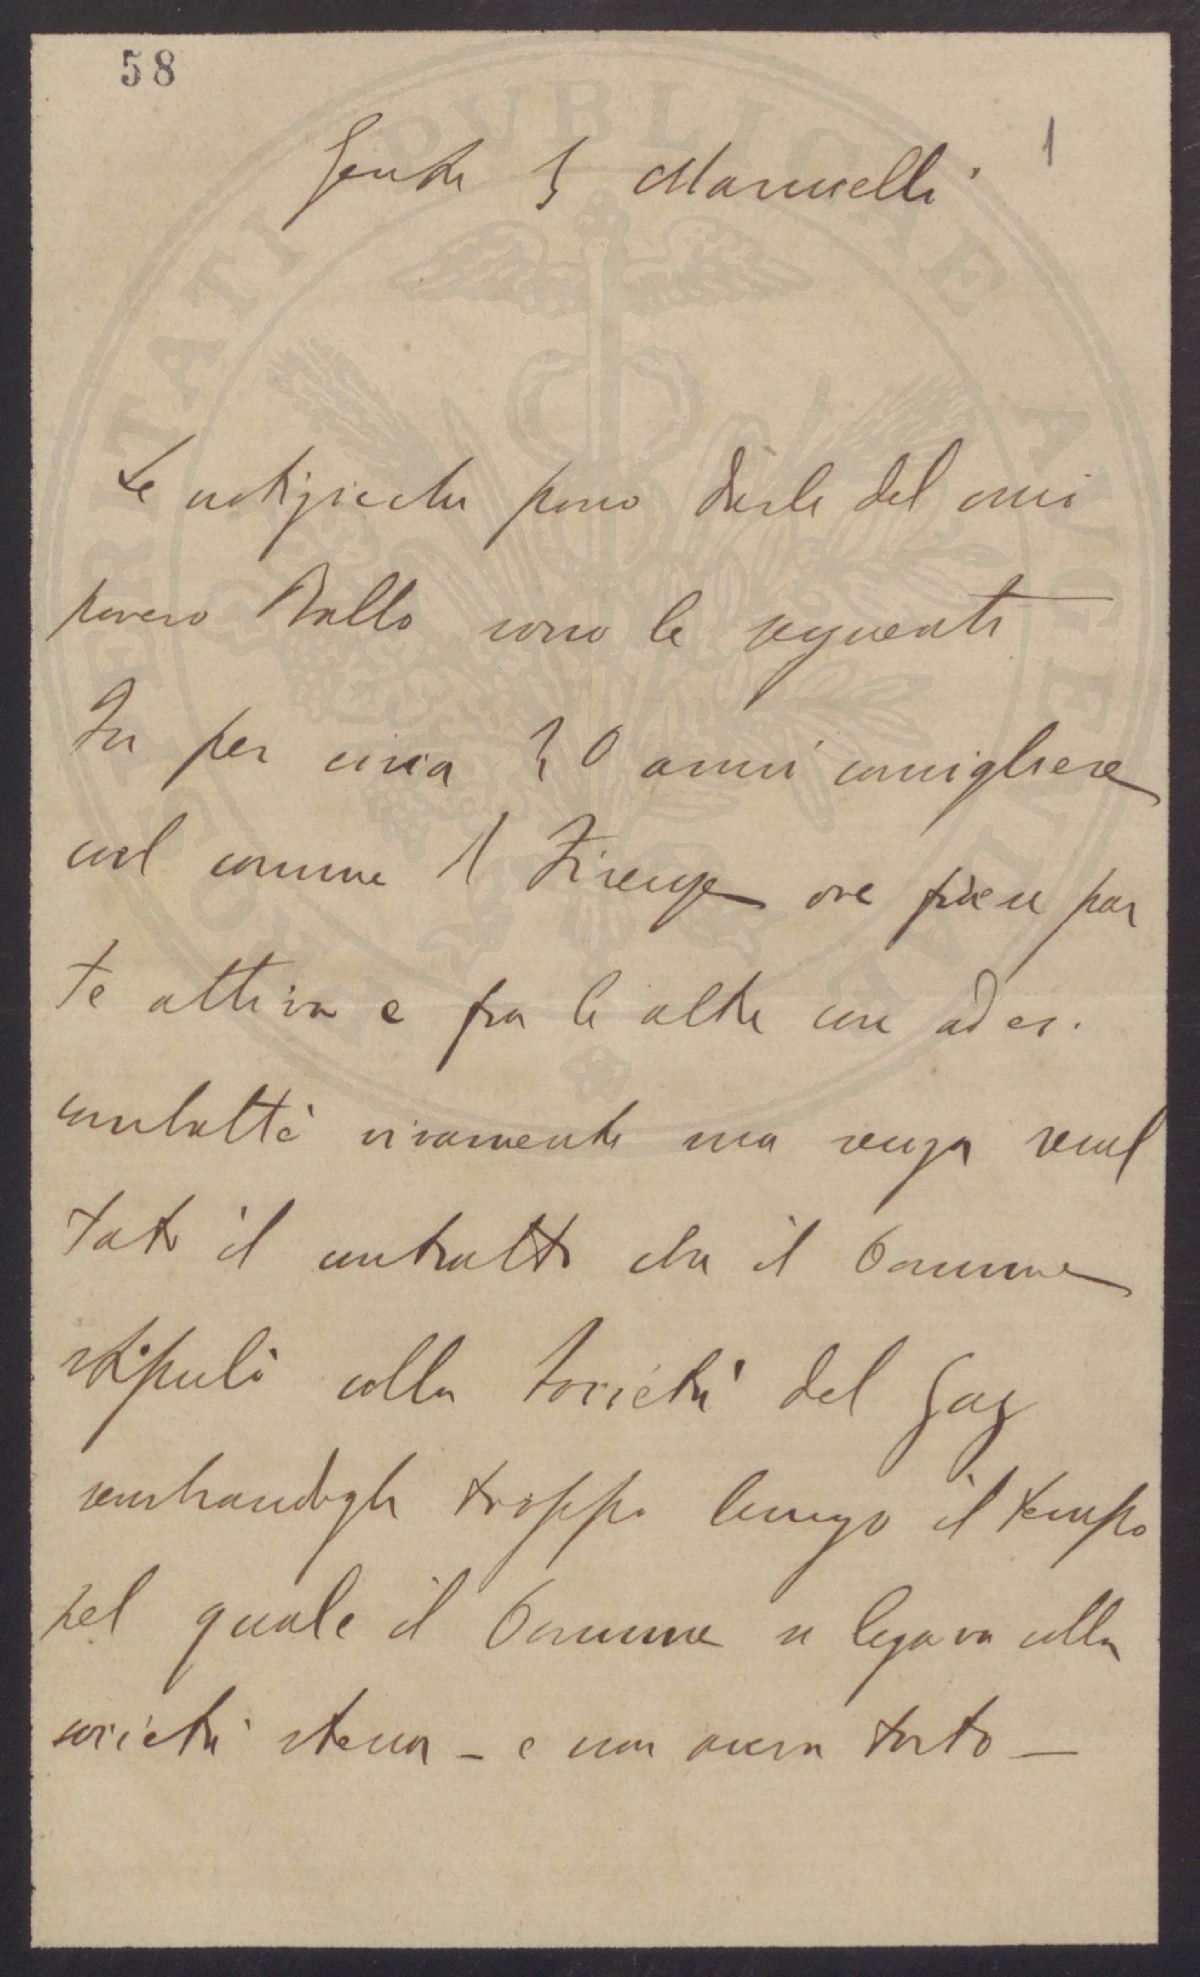 58
1
Gent. S. Marinelli
Le notizie che posso darle del mio
povero Ballo sono le seguenti
Fu per circa 30 anni consigliere
col comune di Firenze ove prese par
te attiva e fra le altre cose ad es.
combattè vivamente ma senza resul
tato il contratto che il Comune
stipulò colla Società del Gaz
sembrandogli troppo lungo il tempo
pel quale il Comune si legava colla
società stessa - e non aveva torto -